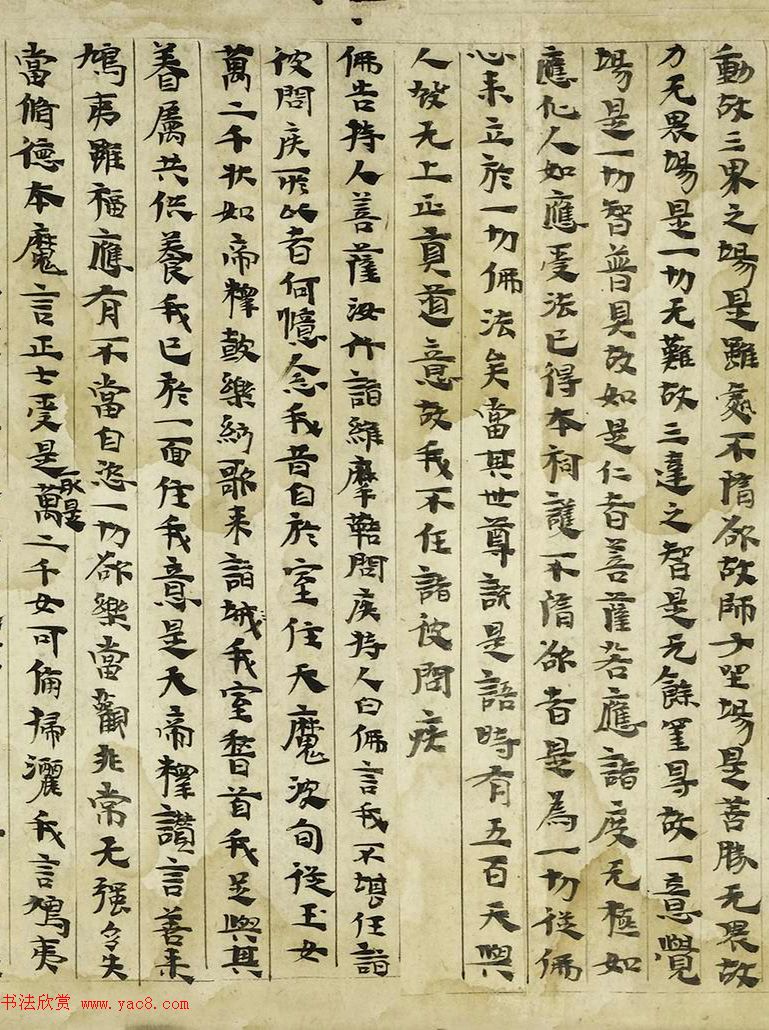 動故三界之場是雖處不隋欲故師子坐場是善勝无畏故
力无畏場是一切无難故三達之智是无餘罣㝵故一意覺
場是一切智普具故如是仁者菩薩若應諸度无極如
應化人如應受法已得本祠護不隋欲者是為一切從佛
心来立於一切佛法矣當其世尊說是語時有五百天與
人發无上正真道意故我不任詣彼問疾
佛告持人菩薩汝行詣維摩鞊問疾持人白佛言我不堪任詣
彼問疾所以者何憶念我昔自於室住天魔波旬從玉女
萬二千狀如帝釋鼓樂絃歌来詣城我室稽首我足與其
眷属共供養我已於一面住我意是天帝釋讃言善来
鳩夷雖福應有不當自恣一切欲樂當觀非常无强多失
當脩德本魔言正士受是萬二千女可俻掃灑我言鳩夷
取是
书法欣赏 www.yac8.com